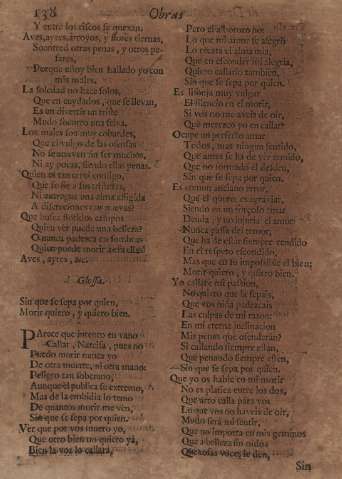 138 Obras
Y entre los riscos se
Aves, ayes, arroyos, y flores tiernas,
Socorred otras penas, y otros pesares,
Porque estoy bien hallado yo con
mis males.
La soledad no hace solos,
Que en cuydados, que se llevan,
Es un divertir un triste
Mudo socorro una seiva.
Los males son muy cobardes,
de las ofensas
No se atreven
Ni ay pocas, siendo ellas penas.
Quien es tan cruel consigo,
Que se fie a sus tristezas,
una alma afligida
A discreciones
Que busca floridos campos
Quien ver puede una belleza?
O nunca
Quien puede morir
Aves, ayres, &c.
Glossa.
Sin que se sepa por quien,
Morir quiero, y quiero bien.
PArece que intento en vano
Callar, Narcisa, pues no
Puedo morir nunca yo
De otra muerte, ni otra mano:
Peligro tan soberano,
Aunque es publica se extremo,
Mas de la embidia lo temo
De quantos morir me ven,
Sin que se sepa por quien.
Ver que por vos muero yo,
Que otro bien no quiero yá,
Bien la voz lo callará,
Pero el alborozo no:
Lo que mi amor se alegró
Lo recata el alma mia,
Que en esconder mi alegria,
Quiero callarlo tambien,
Sin que se sepa por quien.
Es lisonja muy vulgar
El silencio en el morir,
Si veis no me aveis de oir,
Què merezco yo en callar?
Ocupe un perfecto amar
Todos, mas ningun sentido,
Que antes se ha de ver rendido,
Que no tornado el desden,
Sin que se sepa por quien.
Es comun anciano error,
Que el querer es agraviar,
Siendo en un forçoso amar
Deuda, y no injuria el amor:
Nunca passa del temor;
Que ha de estar siempre rendido
En el respeto escondido,
Mas que es tu impossible el bien;
Morir quiero, y quiero bien.
Yo callaré mi passion,
No quiero que la sepais,
Que vos niña padezcais
Las culpas de mi razon:
En mi eterna inclinacion
Mis penas que ofenderán?
Si callando siempre están,
Que penando siempre estén,
Sin que se sepa por quien.
Que yo os hable en mi morir
No es platica entre los dos,
Que otro calla para vos
Lo que vos no haveis de oir,
Mudo será mi sentir,
Que no importa en mis gemidos
Que a belleza sin oidos
Quexosas voces le den,
Sin